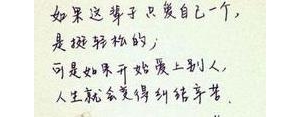 如果这辈子只爱自己一个,
是挺轻松的;
可是如果开始爱上别人,
人生就会变得纠结辛苦.